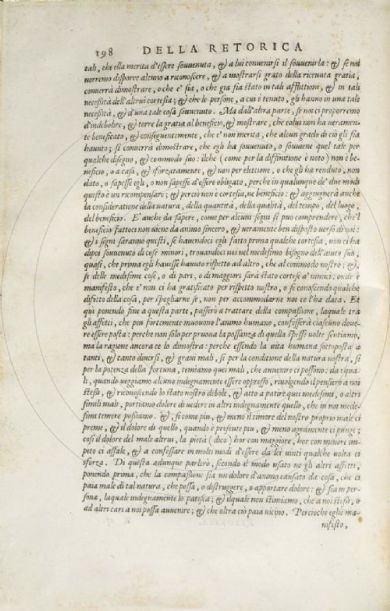 198 DELLA RETORICA
tali, che ella merita d'essere souuenuta, & a lui conuenirsi il souuenirla: & se noi
uorremo disporre alcuno a riconoscere, & a mostrarsi grato della riceuuta gratia,
conuerrà dimostrare, o che è sia, o che già sia stato in tali afflittioni, & in tali
necessità dell'altrui cortesia; & che le persone, a cui è tenuto, gli hanno in una tale
necessità, & d'una tale cosa souuenuto. Ma dall'altra parte, se noi ci proporremo
d'indebolire, & torre la gratia al beneficio, & mostrare, che colui non ha ueramen
te beneficato, & conseguentemente, che e' non merita, che alcun grado di ciò gli sia
hauuto; si conuerrà dimostrare, che egli ha souuenuto, o souuiene quel tale per
qualche disegno, & commodo suo: ilche (come per la diffinitione è noto) non è be-
neficio, o a caso, & sforzatamente, & non per elettione, o che gli ha renduto, non
dato, o sapesse egli, o non sapesse d'essere obligato, perche in qualunque de' due modi
questo è un ricompensare; & perciò non è cortesia, ne beneficio: & aggiugnerà anche
la consideratione della natura, della quantità, della qualità, del tempo, del luogo,
del beneficio. E' anche da sapere, come per alcuni segni si può comprendere, che'l
beneficio fattoci non uiene da animo sincero, & ueramente ben disposto uerso di noi:
& i segni saranno questi, se hauendoci egli fatto prima qualche cortesia, non ci ha
dipoi souuenuto di cose minori, trouandoci noi nel medesimo bisogno dell'aiuto suo,
quasi, che prima egli hauesse hauuto rispetto ad altro, che al commodo nostro: &
se delle medesime cose, o di pari, o di maggiori sarà stato cortese a' nimici: onde è
manifesto, che e' non ci ha gratificato per rispetto nostro, o se conoscendo qualche
difetto della cosa, per spogliarne se, non per accommodarne noi ce l'ha data. Et
qui ponendo fine a questa parte, passerò a trattare della compassione, laquale tra
gli affetti, che più fortemente muouono l'animo humano, confesserà ciascuno doue-
re essere posta: perche non solo per pruoua la possanza di quella spesse uolte sentiamo,
ma la ragione ancora te lo dimostra: perche essendo la uita humana sottoposta a
tanti, & tanto diuersi, & graui mali, sì per la conditione della natura nostra, sì
per la potenza della fortuna, temiamo quei mali, che auuenire ci possono: da i qua-
li, quando ueggiamo alcuno indegnamente essere oppresso, riuolgendo il pensiero a noi
stessi, & riconoscendo lo stato nostro debole, & atto a patire quei medesimi, o altri
simili mali, portiamo dolore di uedere in altri indegnamente quello, che in noi mede-
simi temere possiamo. &, si come più, & meno il timore del nostro proprio male ci
preme, & il dolore di quello, quando è presente più, & meno agramente ci punge;
così il dolore del male altrui, la pietà (dico) hor con maggiore, hor con minore im-
peto ci assale, & a confessare in molti modi d'essere da lei uinti qualche uolta ci
sforza. Di questa adunque parlerò, secondo il modo usato ne gli altri affetti,
ponendo prima, che la compassione sia un dolore d'animo causato da cosa, che ci
paia male di tal natura, che possa, o distruggere, o apportare dolore: & sia in per-
sona, laquale indegnamente lo patisca; & ilquale noi stimiamo, che a noi stessi, o
ad altri cari a noi possa auuenire; & che oltra ciò paia uicino. Percioche egli è ma-
nifesto,